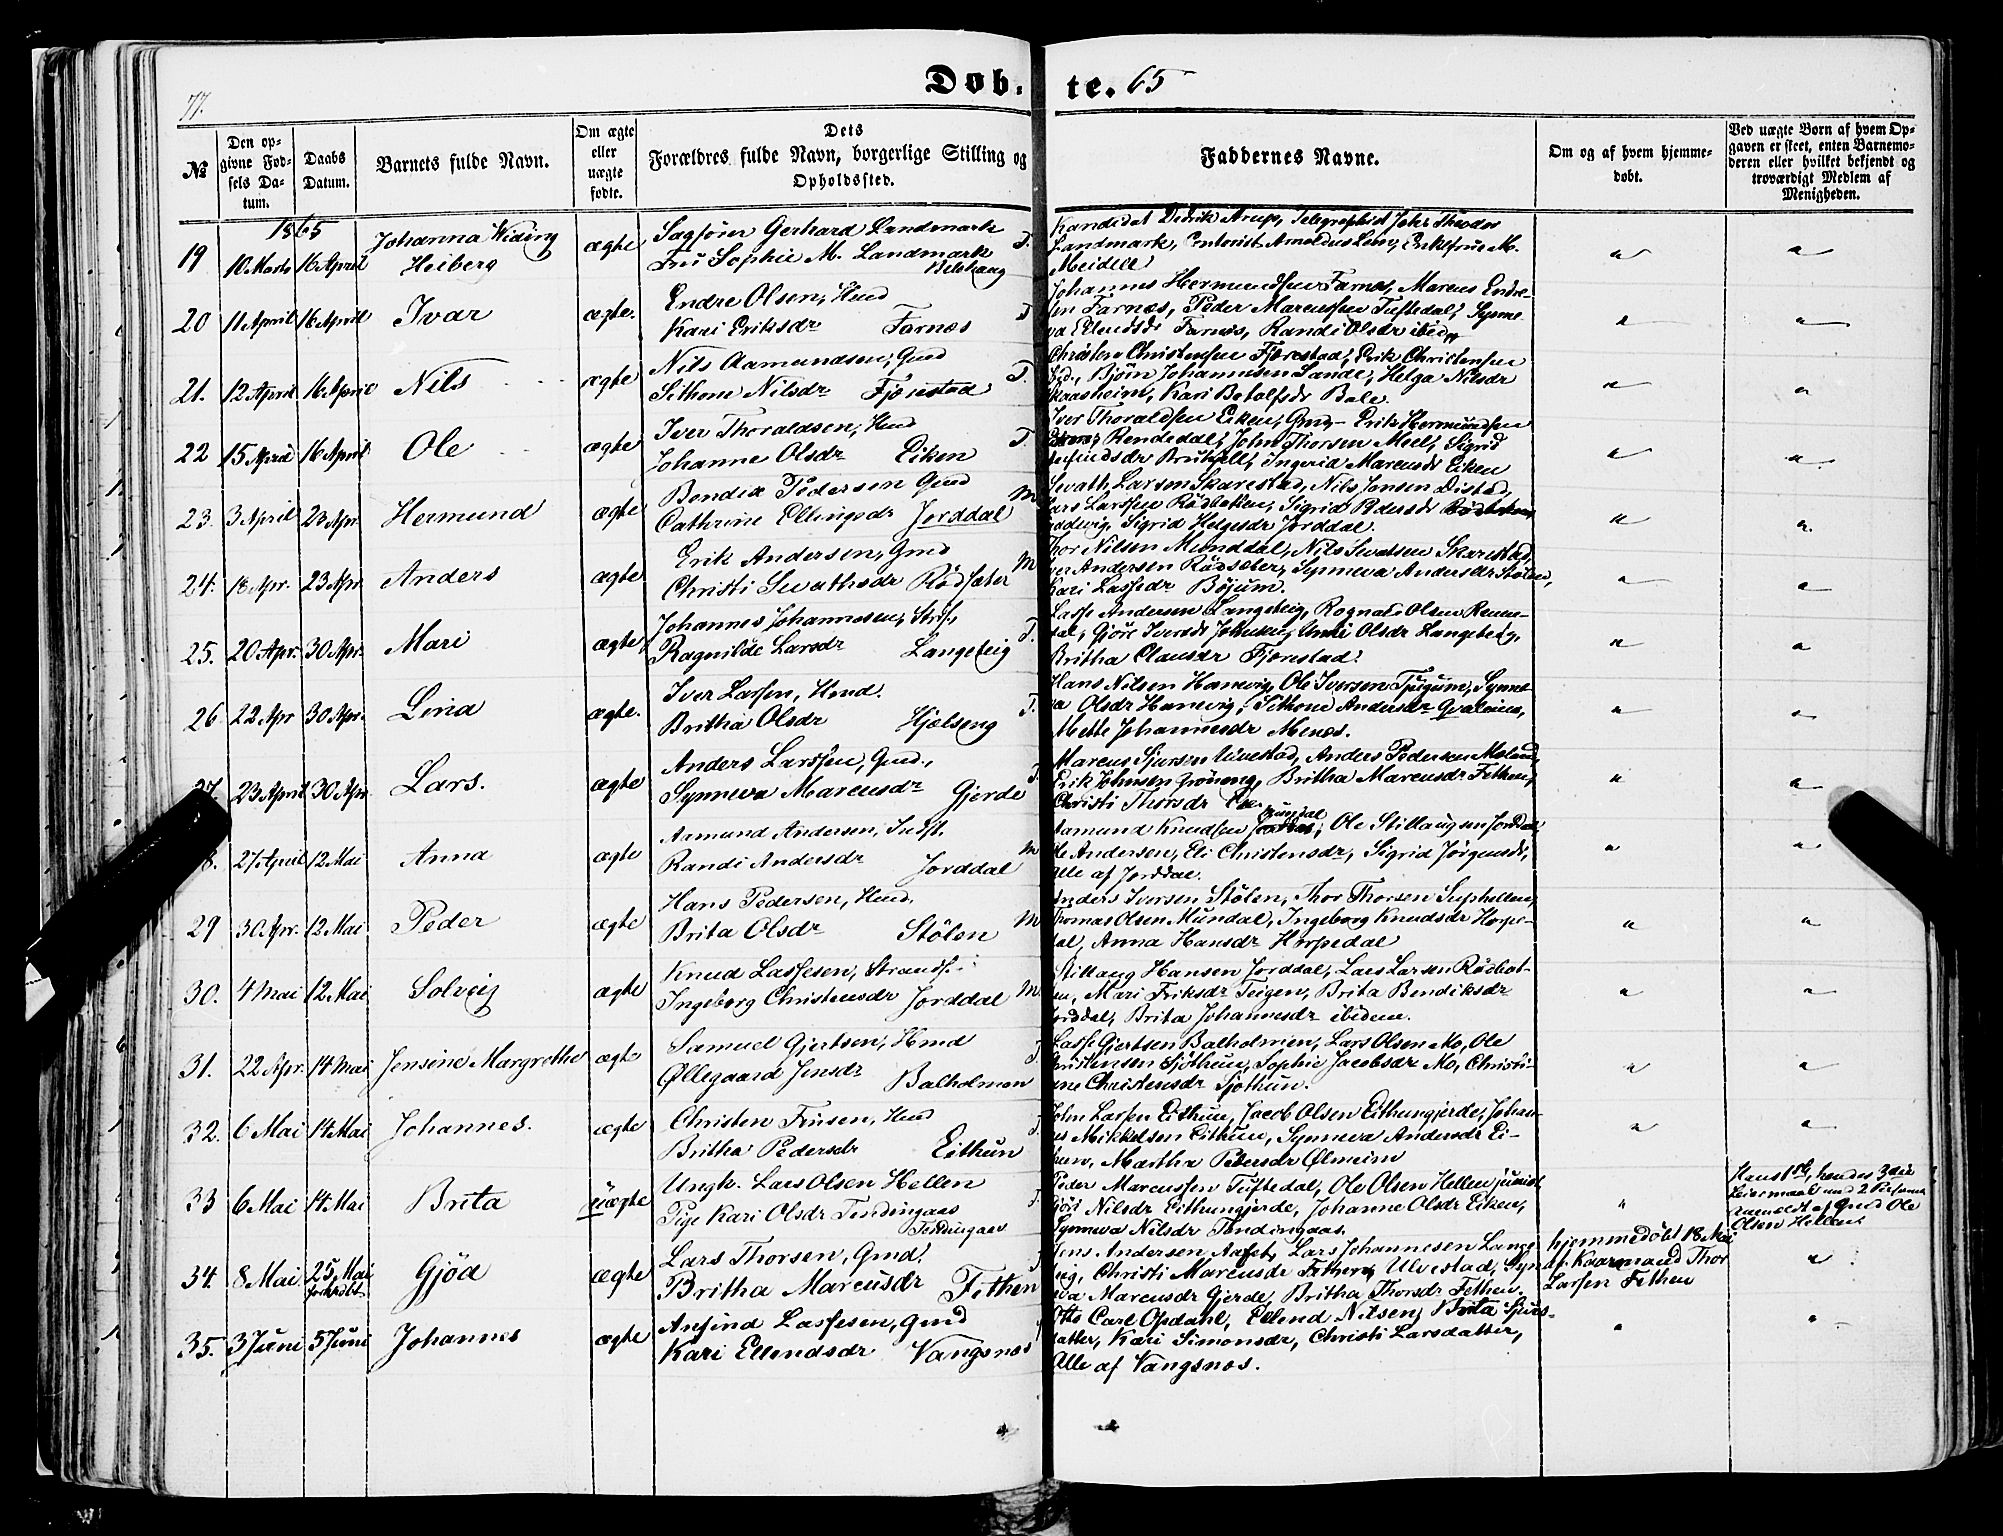 77.
Døb. te. 65
№
Den op-
givne Fød-
sels Da-
tum.
Daabs
Datum.
Barnets fulde Navn.
Om ægte
eller
uægte
fødte.
Dets
Forældres fulde Navn, borgerlige Stilling og
Opholdssted.
Faddernes Navne.
Om og af hvem hjemme-
døbt.
Ved uægte Børn af hvem Op-
gaven er skeet, enten Barnemo-
deren eller hvilket bekjendt og
troværdigt Medlem af
Menigheden.
1865
19 10 Marts 16 April Johanna Widing Heiberg ægte
Sagfører Gerhard Landmark
Fru Sophie M. Landmark
T.
Kandidat Didrik Arup, Telegraphist John Theodor
Landmark, Arnoldus Enkefrue M.
Meidell
20 11 April 16 April Ivar ægte.
Endre Olsen, Hmd
Kari Eriksdr Farnæs
T
Johannes Hermundsen Farnæs, Marcus Endre-
sen Farnæs, Peder Marcussen Tuftedal, Synne-
va Farnæs, Randi Olsdr ibid
21. 12 April 16 April Nils ægte
Nils Aamundsen, Gmd
Sithone Nilsdr Fjørestad
T.
Christen Christensen Fjørestad, Erik Christensen
ibd., Bjørn Johannesen Sande, Helga Nilsdr
Kaasheim, Kari Botolfsdr Bale.
22 15 April 16 April Ole ægte
Iver Thoraldsen, Hmd
Johanne Olsdr Eiken
T
Iver Thoraldsen Eiken, Gmd, Erik Hermundsen
Rendedal, John Thorsen Meel, Sigrid
Ingerid Marcusdr Eiken
23. 3 April 23 Apr. Hermund ægte
Bendix Pedersen Gmd
Cathrine Ellingsdr Jorddal
M
Sevath Larsen Skarestad, Nils Jonsen Distad,
Lars Larssen Rødbotten, Sigrid Pedersdr
Sigrid Helgesdr Jorddal.
24. 18 Apr. 23 Apr Anders ægte
Erik Andersen, Gmd
Christi Sevathsdr Rødsæter
M
Thor Nilsen Munddal, Nils Sevatsen Skarestad,
Iver Andersen Rødsæter, Synneva Andersdr Stølen,
Kari Lassesdr Bøjum.
25. 20 Apr. 30 Apr. Mari ægte
Johannes Johannesen, Strf.,
Ragnilde Larsdr Langeteig
T.
Lasse Andersen Langeteig, Rognald Olsen Renne-
dal, Gjøre Iversdr Olsdr Langeteig,
Britha Olausdr Fjørestad.
26. 22 Apr 30 Apr. Lina ægte.
Iver Larsen, Hmd.
Britha Olsdr Hjelseng
T.
Hans Nilsen Hanevig, Ole Iversen Tjugum, Synne-
va Olsdr Hanevig, Sithone Andersdr
Mette Johannesdr Menæs.
27. 23 April 30 Apr. Lars. ægte
Anders Larssen, Gmd.,
Synneva Marcusdr Gjerde
T.
Marcus Sjursen Ulvestad, Anders Pedersen Meland,
Erik Johnsen Grøneng, Britha Marcusdr Fethen,
Christi Thorsdr
28. 27 April 12 Mai Anna ægte
Aamund Andersen, Indst.
Randi Andersdr Jorddal
M
Aamund Knudsen Mundal, Ole Stillaugsen Jorddal
Ole Andersen, Eli Christensdr, Sigrid Jørgensdr,
Alle af Jorddal.
29 30 Apr. 12 Mai Peder ægte
Hans Pedersen, Hmd.
Brita Olsdr Stølen
M
Anders Iversen Stølen, Thor Thorsen Suphellen,
Thomas Olsen Mundal, Ingeborg Knudsdr Horpe-
dal, Anna Hansdr Horpedal
30. 4 Mai 12 Mai Solveig ægte
Knud Lassesen, Strandf.
Ingeborg Christensdr Jorddal
M.
Stillaug Hansen Jorddal, Lars Larsen Rødbot-
ten, Mari Eriksdr Teigen, Brita Bendiksdr
Jorddal, Brita Johannesdr ibidem.
31. 22 Apr. 14 Mai Jensine Margrethe ægte
Samuel Gjertsen, Hmd
Øllegaard Jensdr Balholmen
T
Lasse Gjertsen Balholmen, Lars Olsen Mo, Ole
Christensen Sjøthun, Sophie Jacobsdr Mo, Christi-
ane Christensdr Sjøthun.
32. 6 Mai 14 Mai Johannes. ægte
Christen Hmd
Britha Pedersdr Eithun
T
John Larsen Eithun, Jacob Olsen Eithungjerde, Johan-
nes Mikkelsen Eithun, Synneva Andersdr Ei-
thun, Martha Pedersdr Ølmeim
33 6 Mai 14 Mai Brita uægte
Ungk. Lars Olsen Hellen
Pige Kari Olsdr Tendingaas
T
Peder Marcussen Tuftedal, Ole Olsen Hellen junior
Gjøri Nilsdr Eithungjerde, Johanne Olsdr Eiken,
Synneva Nilsdr Tendingaas.
hendes 3die
Leiermaal med 2 Person
anmeldt af Gmd Ole
Olsen Hellen
34. 8 Mai 25 Mai Gjød ægte
Lars Thorsen, Gmd.
Britha Marcusdr Fethen
T
Jens Andersen Lars Johannesen Lange-
teig, Christi Marcusdr Ulvestad, Syn-
neva Marcusdr Gjerde, Britha Thorsdr Fethen.
hjemmedøbt 18 Mai
af Kaarmand Thor
Larsen Fethen
35. 3 Juni 5 Juni Johannes ægte
Anfind Lassesen, Gmd
Kari Ellendsdr Vangsnæs
Otto Carl Opdahl, Ellend Nilsen, Brita Sjurs-
datter, Kari Simonsdr, Christi Larsdatter,
Alle af Vangsnæs.